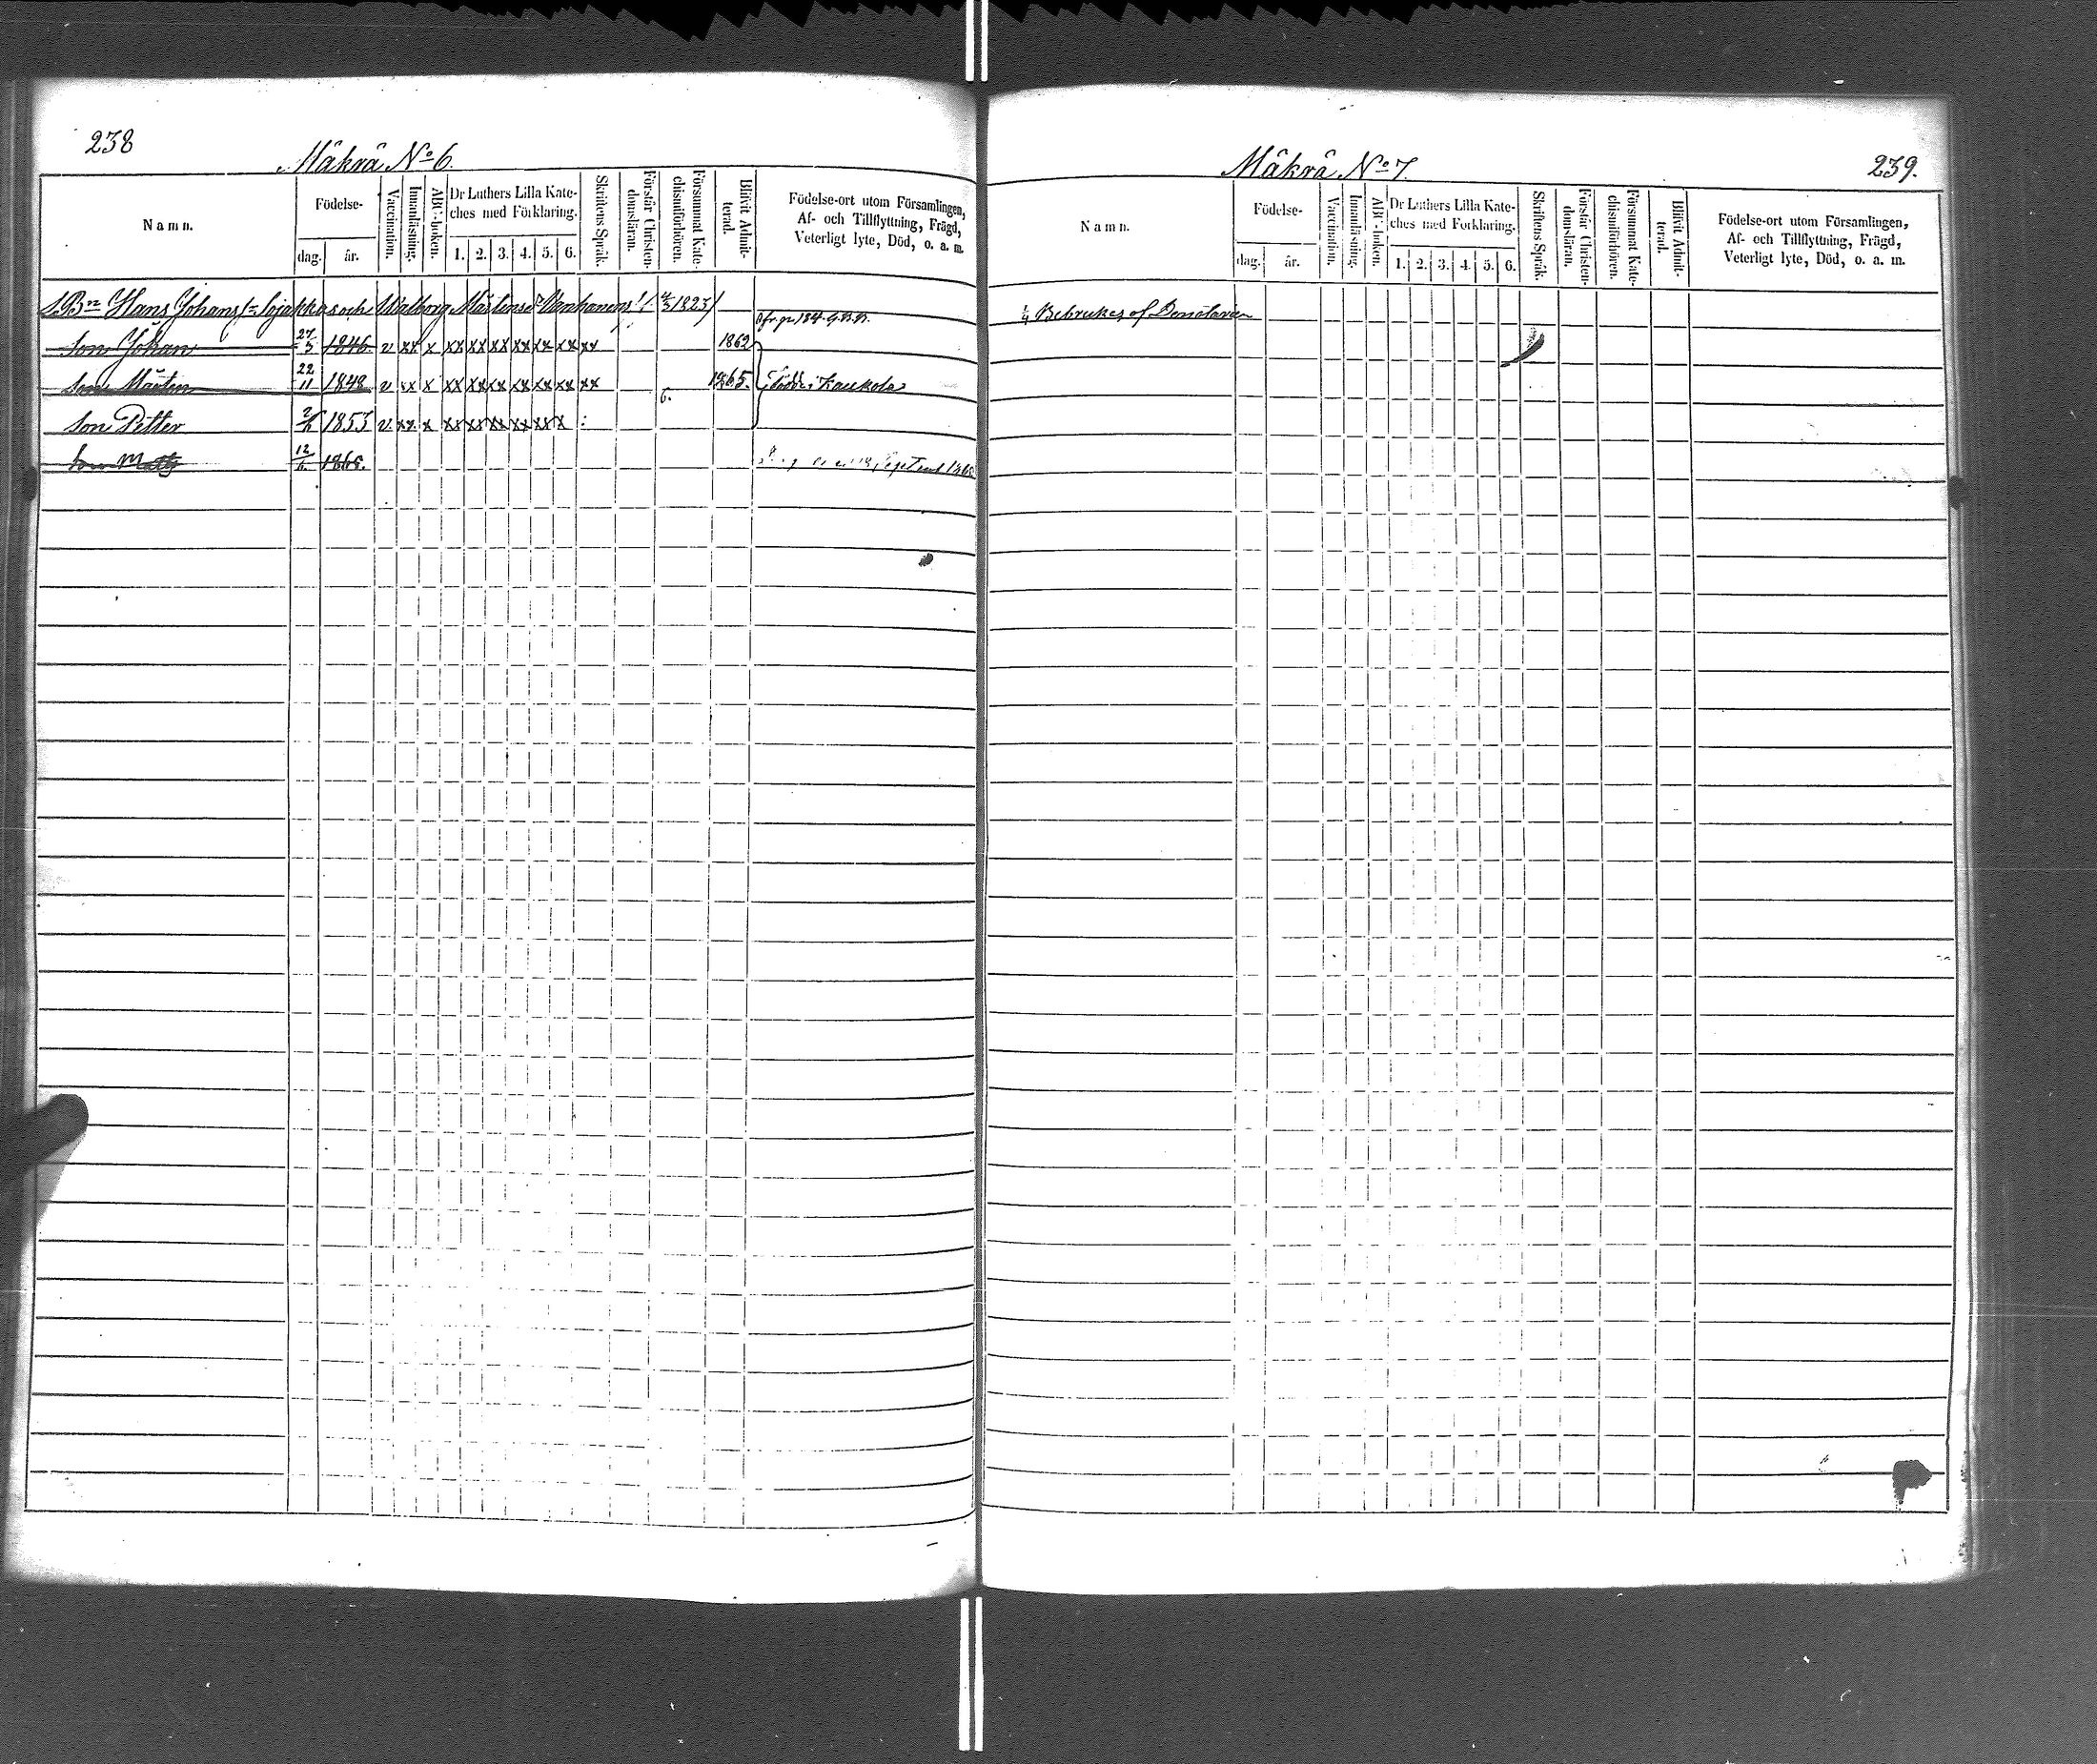 238
Mäkrä No 6.
Namn.
Födelse-
dag. år.
Vaccination.
Innanläsning.
ABC-boken.
Dr Luthers Lilla Kate-
ches med Förklaring.
1. 2. 3. 4. 5. 6.
Skriftens Språk.
Förstår Christen-
domsläran.
Försummat Kate-
chismiförhören.
Blifvit Admit-
terad.
Födelse-ort utom Församlingen,
Af- och Tillflyttning, Frägd,
Veterligt lyte, Död, o. a. m.
Hans Johans och Walborg Mårtensdr 1823
Son Johan 27/3 1846. v xx x xx xx xx xx xx xx xx 1862
Son Mårten 22/11 1848 v xx x xx xx xx xx xx xx xx 6. 1865. Födde i Kaukola
Son Petter 1853 v xx x xx xx xx xx xx x :
Son Matts 12/6 1868.
Mäkrä No 7.
239.
Namn.
Födelse-
dag. år.
Vaccination.
Innanläsning.
ABC-boken.
Dr Luthers Lilla Kate-
ches med Förklaring.
1. 2. 3. 4. 5. 6.
Skriftens Språk.
Förstår Christen-
domsläran.
Försummat Kate-
chismiförhören.
Blifvit Admit-
terad.
Födelse-ort utom Församlingen,
Af- och Tillflyttning, Frägd,
Veterligt lyte, Död, o. a. m.
1/4 Bebrukes af Donatarien